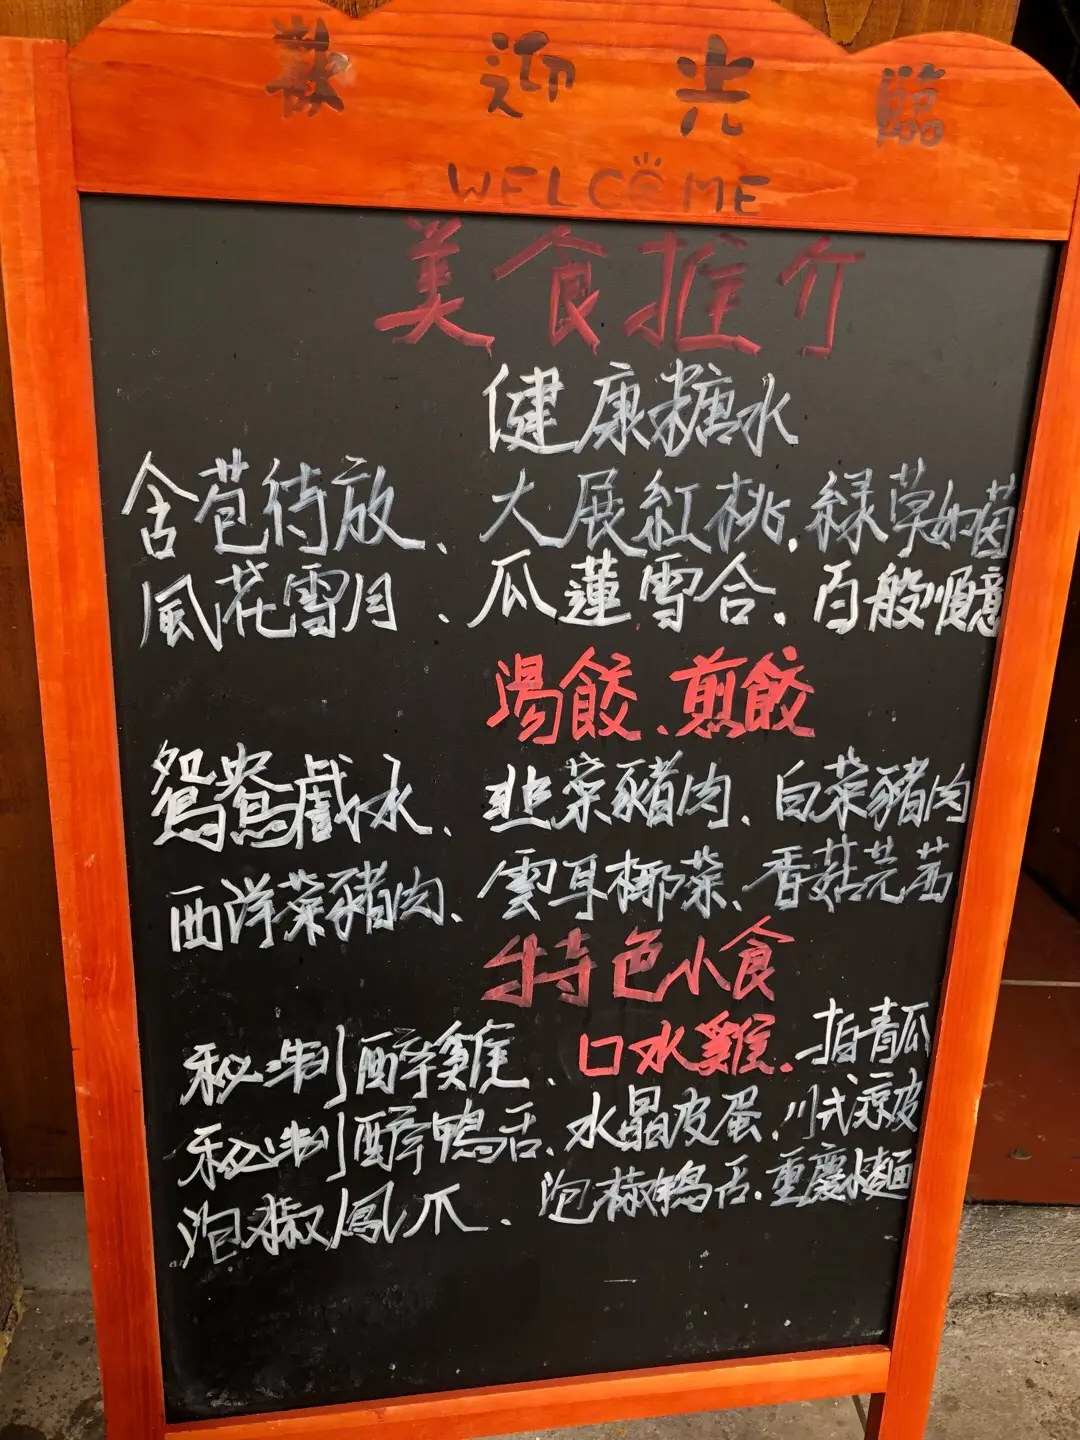 歡迎光臨
WELCOME
美食推介
健康糖水
含苞待放、大展紅桃、綠草如茵
風花雪月、瓜蓮雪合、百般順意
湯餃、煎餃
鴛鴦戲水、韭菜豬肉、白菜豬肉
西洋菜豬肉、雲耳椰菜、香菇芫茜
特色小食
秘制醉雞、口水雞、拍青瓜
秘制醉鴨舌、水晶皮蛋、川式涼皮
泡椒鳳爪、泡椒鴨舌、重慶小麵